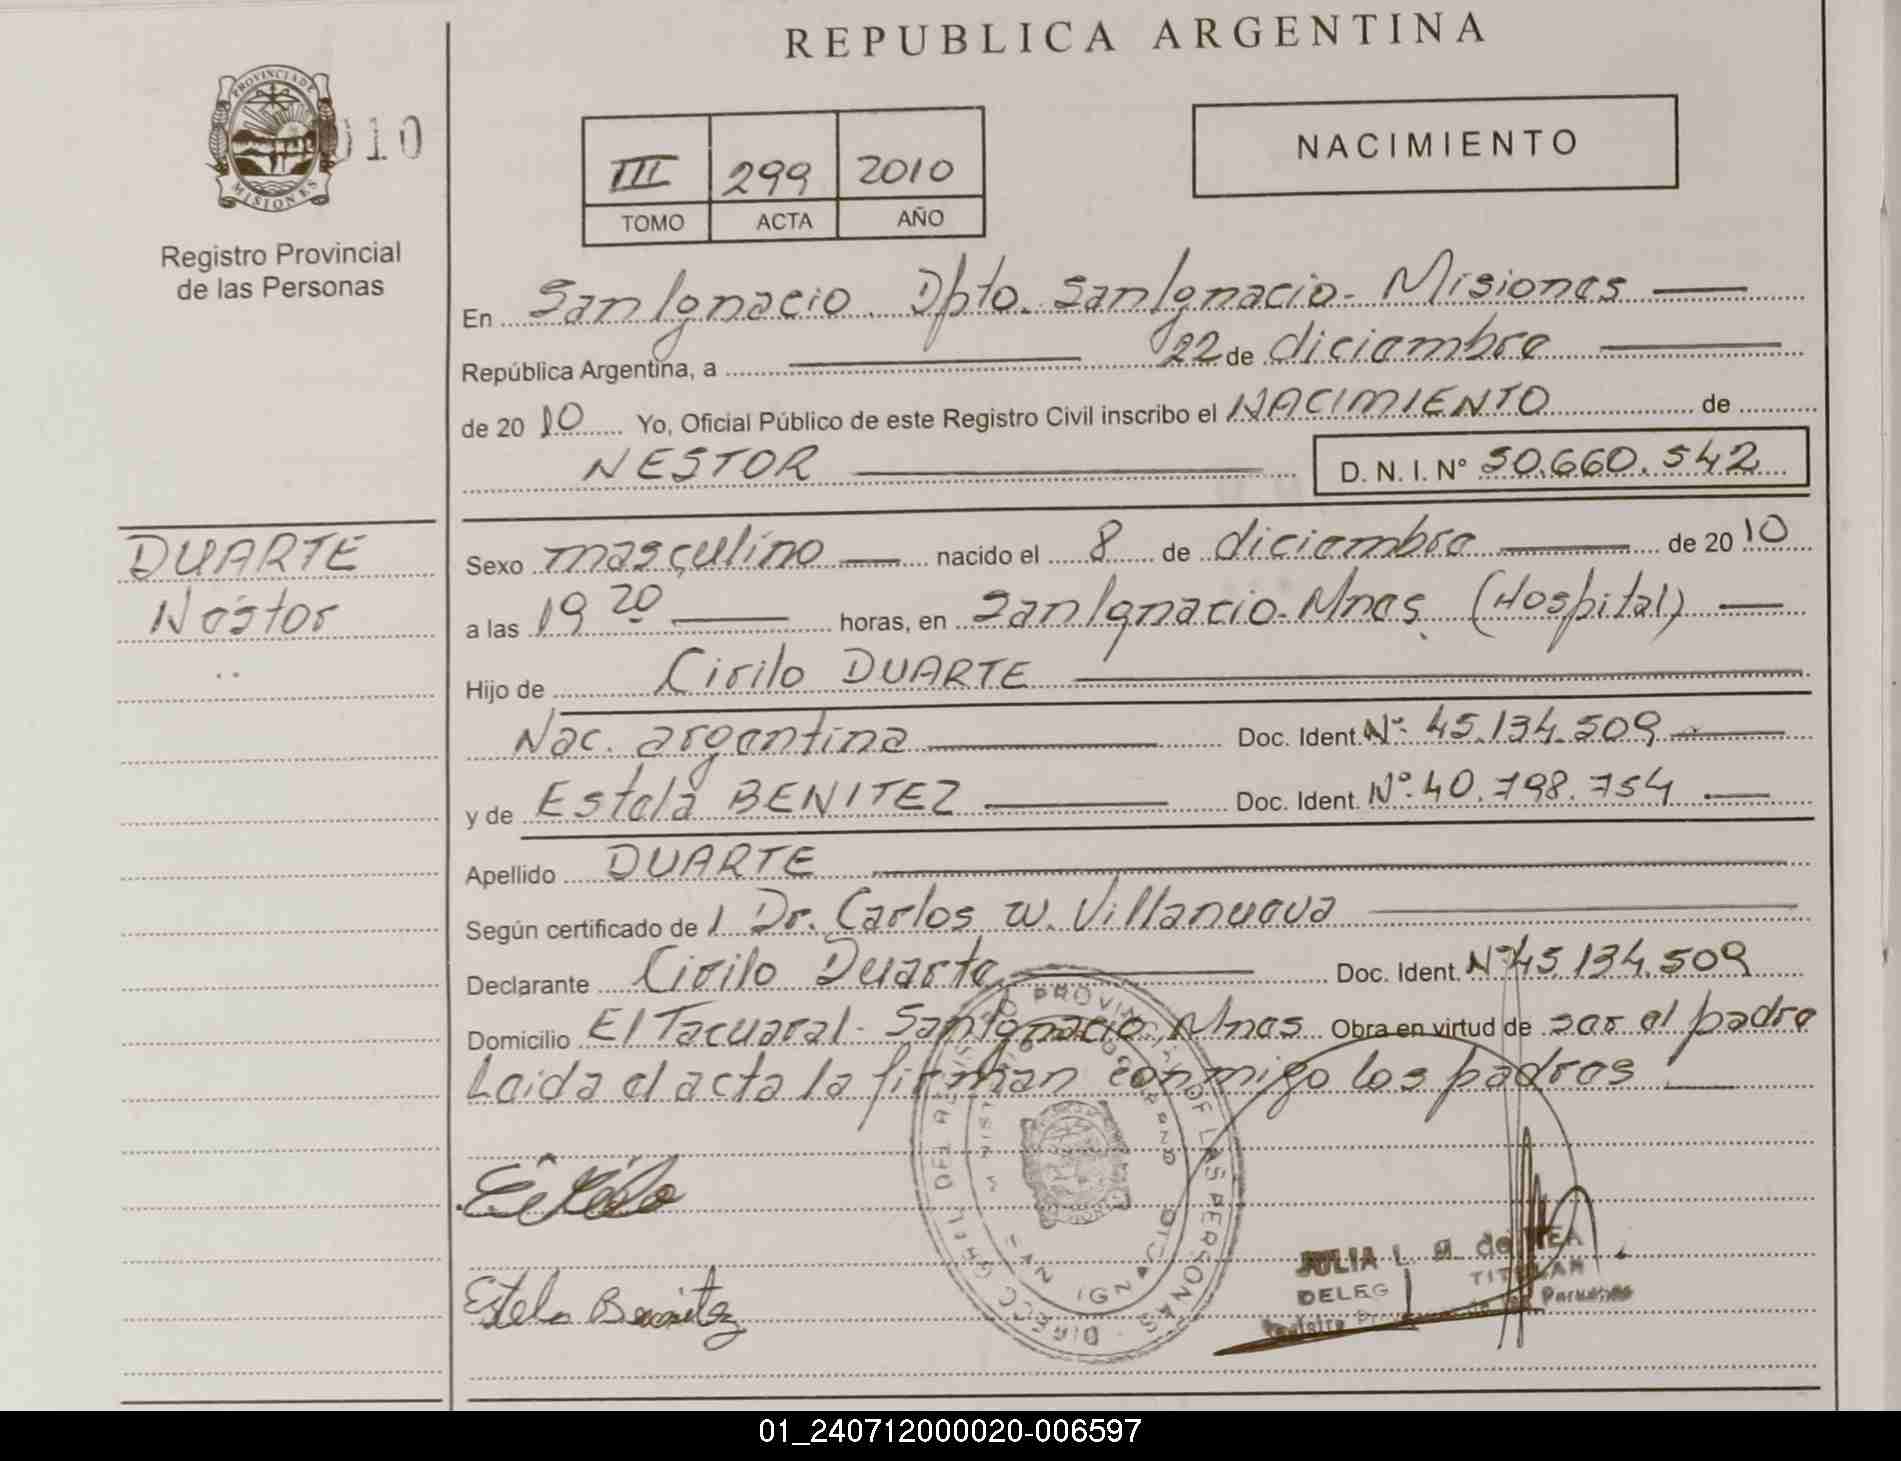 REPUBLICA ARGENTINA
PROVINCIA DE
MISIONES
010
Registro Provincial
de las Personas
III 299 2010
TOMO ACTA AÑO
NACIMIENTO
En San Ignacio. Dpto. San Ignacio - Misiones
República Argentina, a 22 de diciembre
de 2010 Yo, Oficial Público de este Registro Civil inscribo el NACIMIENTO de
NESTOR D. N. I. N° 50.660.542
DUARTE
Néstor
Sexo masculino nacido el 8 de diciembre de 2010
a las 19 20 horas, en San Ignacio - Mnes. (Hospital)
Hijo de Cirilo DUARTE
Nac. argentina Doc. Ident. N°: 45.134.509
y de Estela BENITEZ Doc. Ident. N°: 40.798.754
Apellido DUARTE
Según certificado de l Dr. Carlos W. Villanueva
Declarante Cirilo Duarte Doc. Ident. N° 45.134.509
Domicilio El Tacuaral - San Ignacio, Mnes Obra en virtud de ser el padre
Leida el acta la firman conmigo los padres
Estela Benitez
JULIA L. de
DELEG TITULAR
01_240712000020-006597